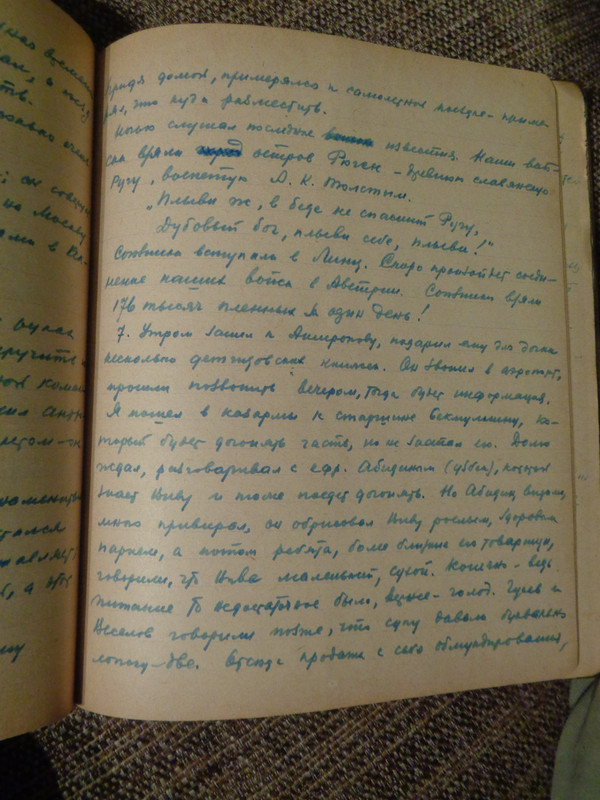 Придя домой, примерялся к самолетной поездке – прики-
нял, что куда разместить.
Ночью слушал последние известия. Наши вой-
ска взяли остров Рюген – древнюю славянскую
Ругу, воспетую А. К. Толстым.
„Плыви ж, в беде не спасший Ругу,
Дубовый бог, плыви себе, плыви!"
Союзники вступили в Линц. Скоро произойдет соеди-
нение наших войск в Австрии. Союзники взяли
176 тысяч пленных в один день!
7. Утром зашел к подарил ему для дочки
несколько детгизовских книжек. Он звонил в аэропорт,
просили позвонить вечером, тогда будет информация.
Я пошел в казармы к старшине ко-
торый будет догонять часть, но не застал его. Долго
ждал, разговаривал с ефр. Абидиным (узбек), который
знает Ниву и тоже поедет догонять. Но Абидин, видимо,
много привирал, он обрисовал Ниву рослым, здоровым
парнем, а потом ребята, более близкие его товарищи,
говорили, что Нива маленький, сухой. Конечно – ведь
питание то недостаточное было, голод. и
Веселов говорили позже, что супу давали буквально
ложку–две. Отсюда продажа с себя обмундирования,